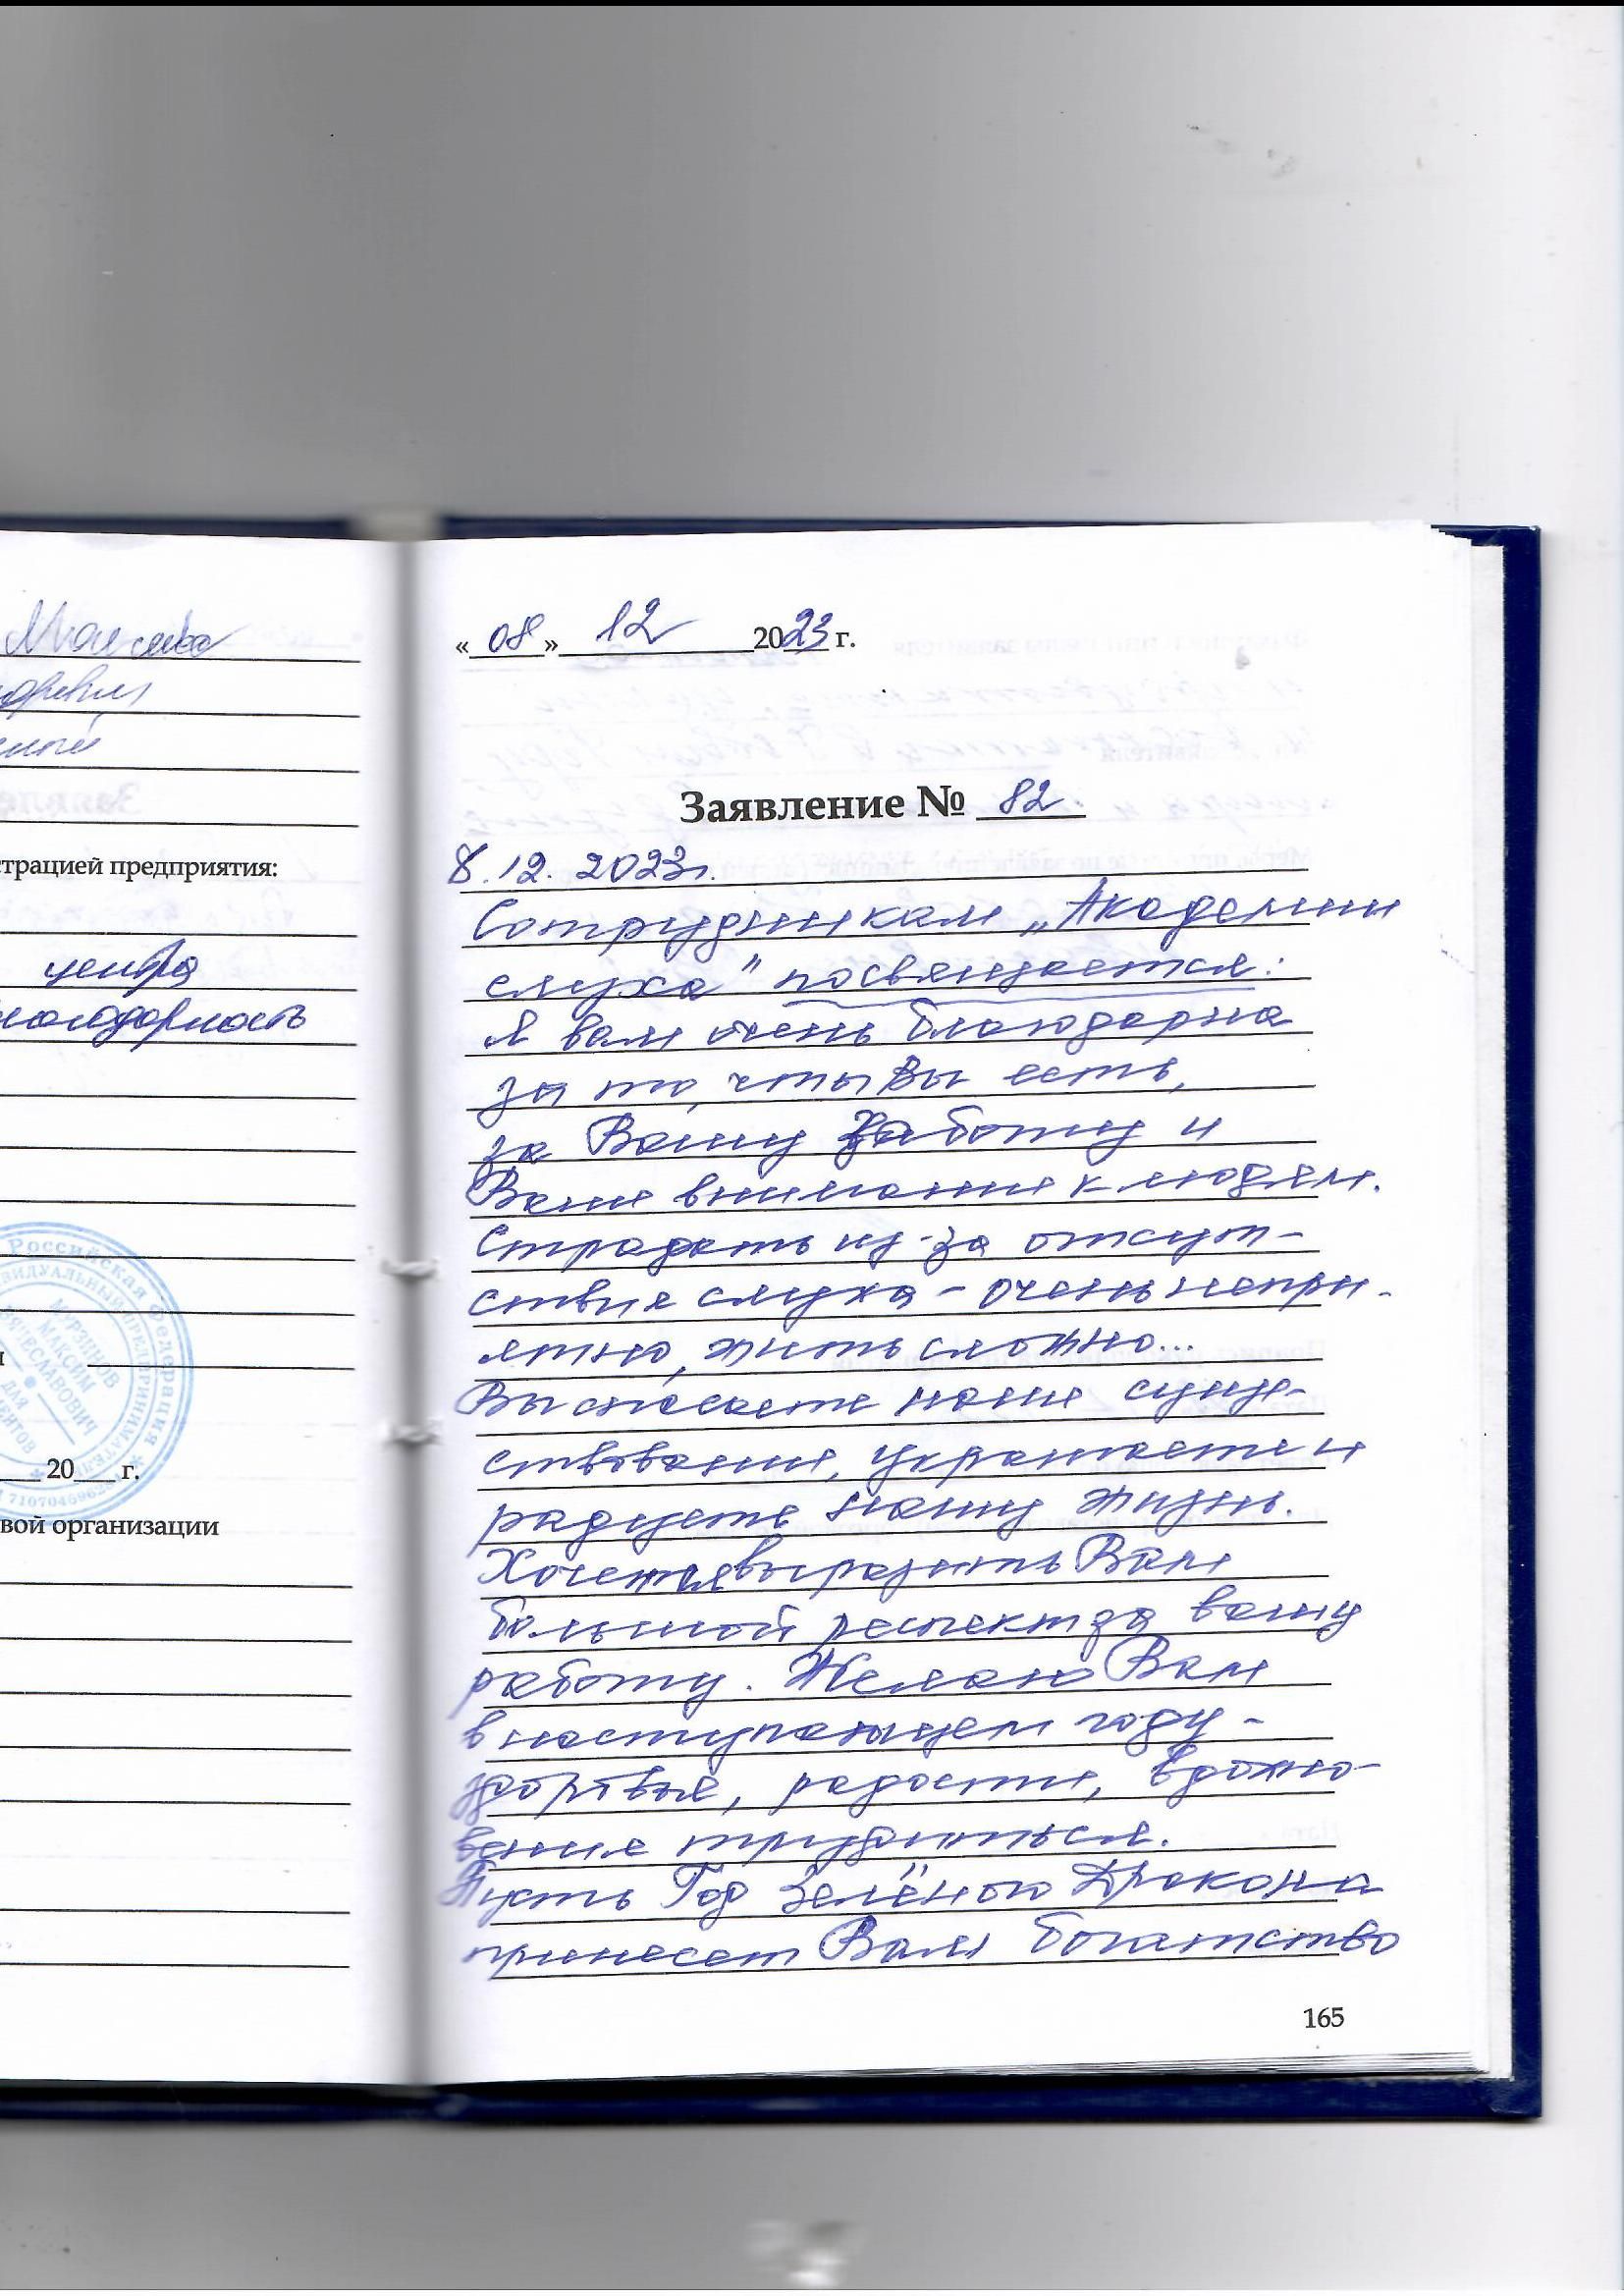 страцией предприятия:
центра
20 г.
вой организации
Российская Федерация
МУРЗИНОВ
МАКСИМ
ВЯЧЕСЛАВОВИЧ
ДЛЯ
« 08 » 12 2023 г.
Заявление № 82
8.12.2023г.
Сотрудникам „Академии
слуха" посвящается:
Я вам очень благодарна
за то, что Вы есть,
за Вашу заботу и
Ваше внимание к людям.
Страдать из-за отсут-
ствия слуха - очень непри-
ятно, жить сложно...
Вы спасаете наше суще-
ствование, украшаете и
радуете нашу жизнь.
Хочется выразить Вам
большой респект за вашу
работу. Желаю Вам
в наступающем году -
здоровья, радости, вдохно-
вения трудиться.
Пусть Год Зелёного Дракона
принесет Вам богатство
165